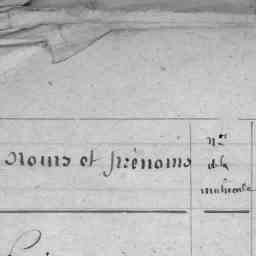 Noms et prénoms
Nos
de la
matricule